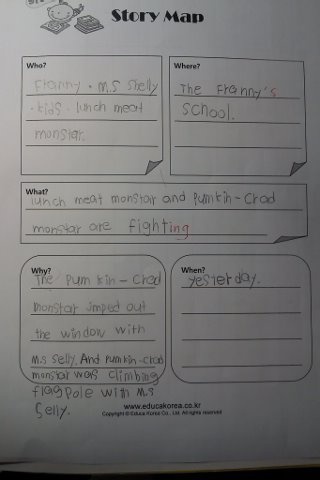 Story Map
Who?
Franny · M.S Shelly
· kids · lunch meat
monstar.
Where?
The Franny's
School.
What?
lunch meat monstar and Pumkin-Crad
monstar are fighting
Why?
The Pum kin - Crad
monstar jmped out
the window with
M.S Selly. And Pumkin-crad
monstar was climbing
flag Pole with M.S
Selly.
When?
yesterday.
www.educakorea.co.kr
Copyright © Educa Korea Co., Ltd. All rights reserved